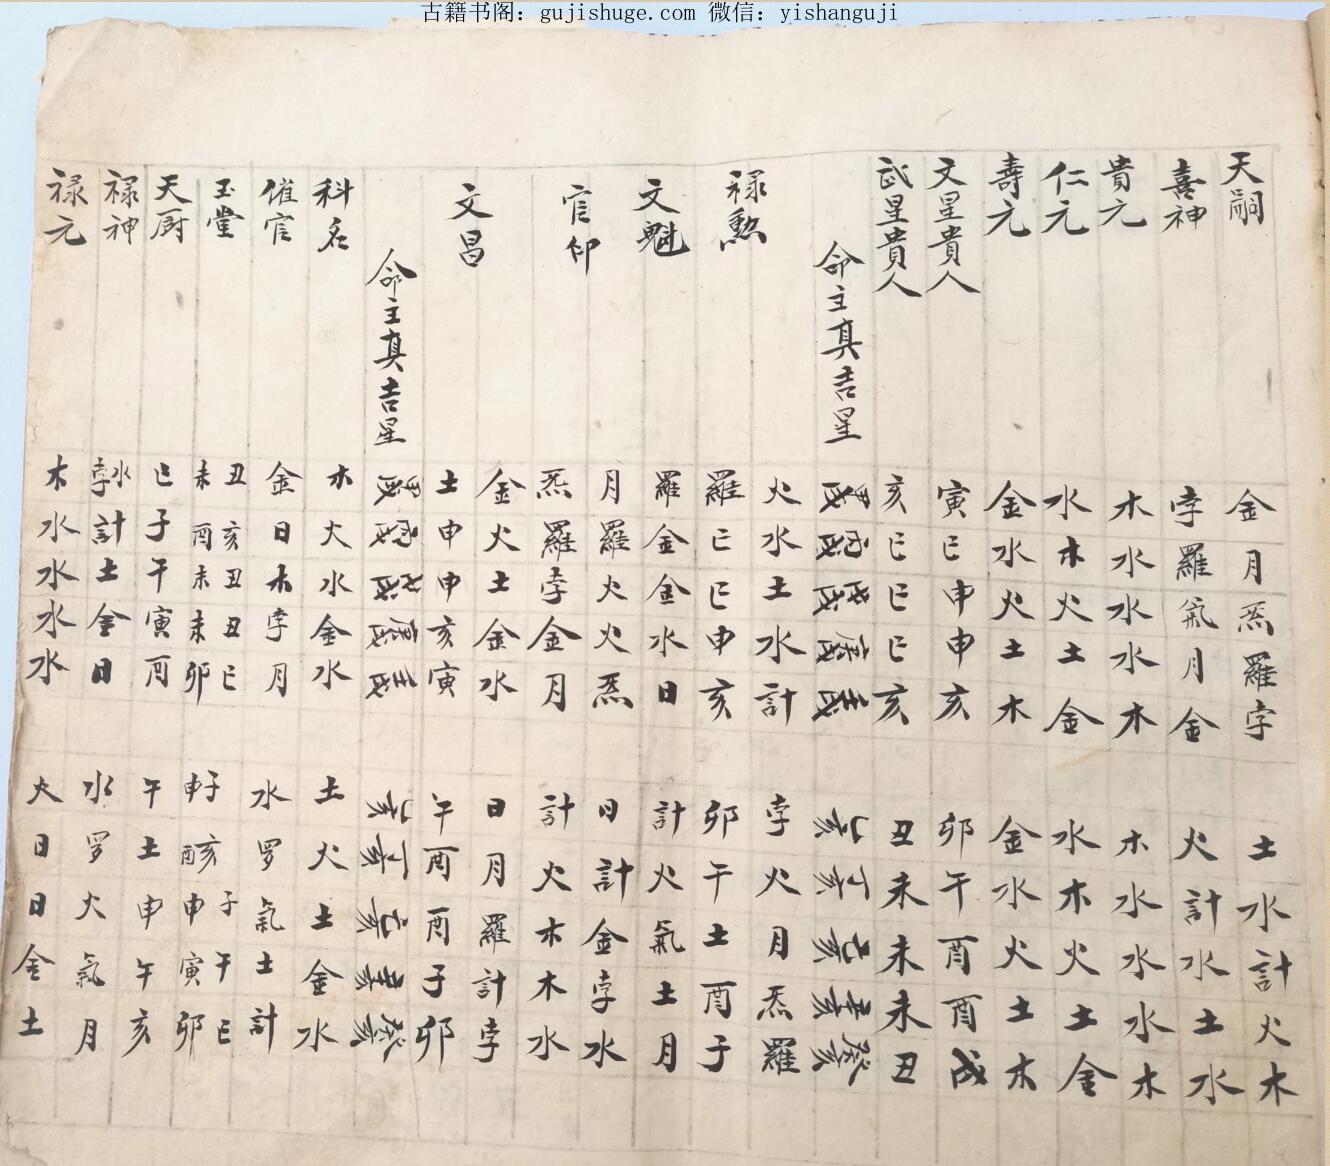 古籍书阁：gujishuge.com 微信：yishanguji
天嗣 金月炁羅孛 土水計火木
喜神 孛羅氣月金 火計水土水
貴元 木水水水木 木水水水木
仁元 水木火土金 水木火土金
壽元 金水火土木 金水火土木
文星貴人 寅巳申申亥 卯午酉酉戌
武星貴人 亥巳巳巳亥 丑未未未丑
命主真吉星 甲戌丙戌戊戌庚戌壬戌 乙亥丁亥己亥辛亥癸亥
火水土水計 孛火月炁羅
祿勲 羅巳巳申亥 卯午土酉子
文魁 羅金金水日 計火氣土月
月羅火火炁 日計金孛水
官印 炁羅孛金月 計火木木水
金火土金水 日月羅計孛
文昌 土申申亥寅 午酉酉子卯
命主真吉星 甲戌丙戌戊戌庚戌壬戌 乙亥丁亥己亥辛亥癸亥
科名 木火水金水 土火土金水
催官 金日木孛月 水罗氣土計
玉堂 丑未亥酉丑未丑未巳卯 子申亥酉子申午寅巳卯
天厨 巳子午寅酉 午土申午亥
祿神 水孛計土金日 水罗火氣月
禄元 木水水水水 火日日金土